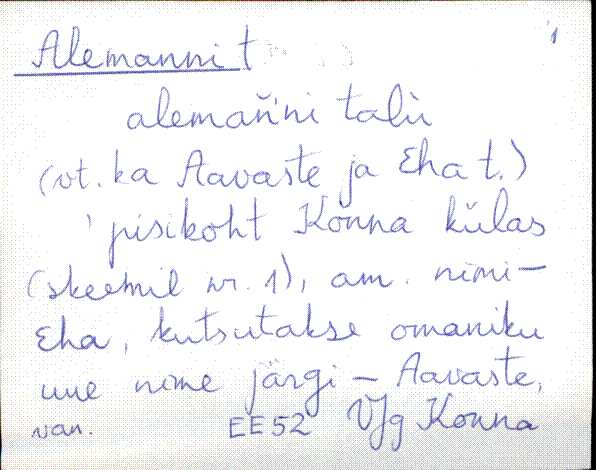 1
Alemanni t
alemań'ni talù
(vt. ka Aavaste ja Eha t.)
'pisikoht Konna külas
(skeemil nr. 1), am. nimi-
Eha, kutsutakse omaniku
uue nime järgi - Aavaste,
van. EE52 VJg Konna